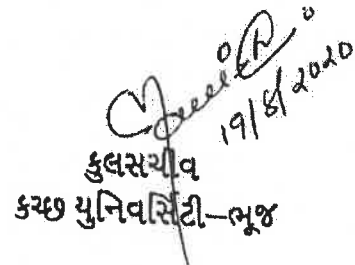 19/8/2020
કુલસચીવ
કચ્છ યુનિવર્સિટી–ભૂજ